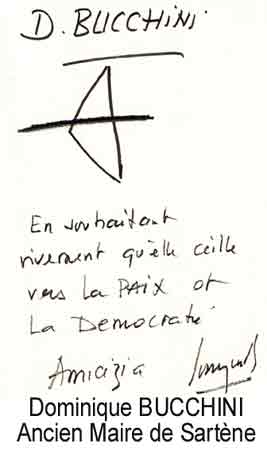 D. BUCCHINI
En souhaitant
vivement qu'elle ceille
vers la PAIX et
La Democratie
Amicizia
Dominique BUCCHINI
Ancien Maire de Sartène